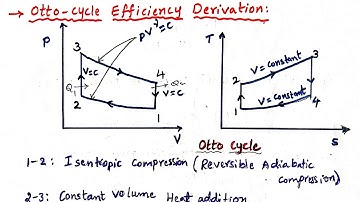 → Otto-cycle Efficiency Derivation:
P
PVᵞ=C
T
3
3
V=constant
4
V=C
Q₁
Q₂
V=C
2
2
V=constant
4
1
1
V
S
Otto cycle
1-2: Isentropic Compression (Reversible Adiabatic
compression)
2-3: Constant Volume Heat addition